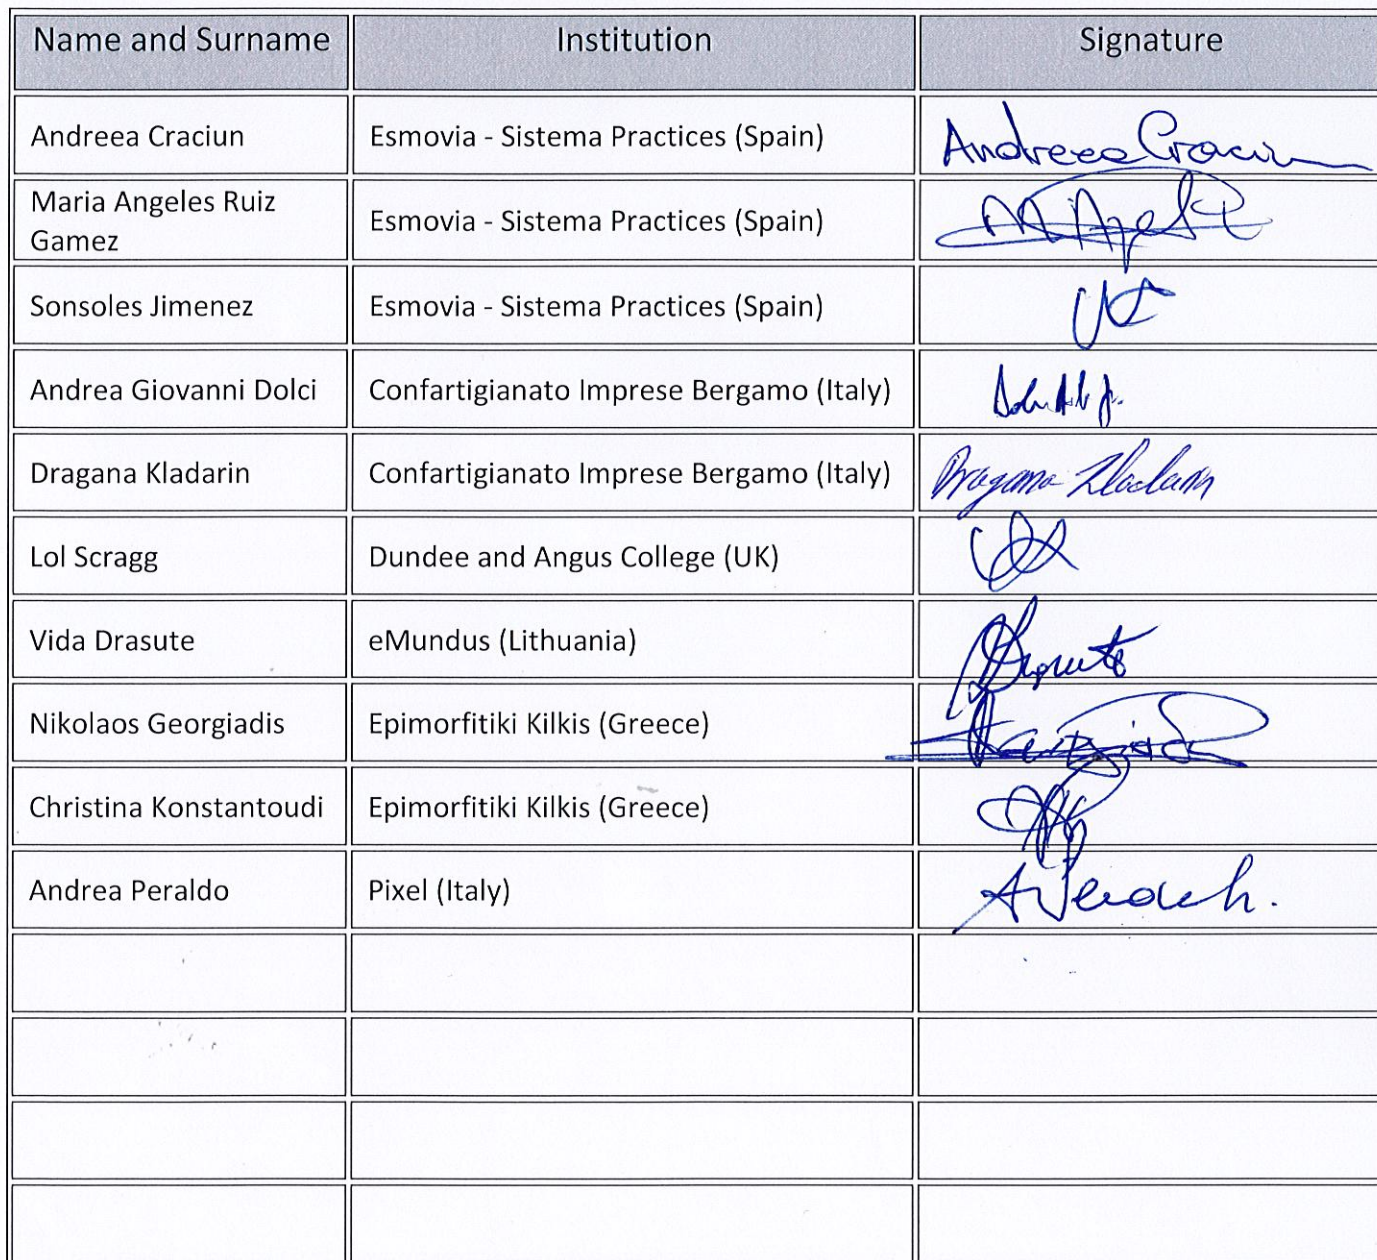 Name and Surname Institution Signature
Andreea Craciun Esmovia - Sistema Practices (Spain) Andreea Craciun
Maria Angeles Ruiz
Gamez Esmovia - Sistema Practices (Spain)
Sonsoles Jimenez Esmovia - Sistema Practices (Spain)
Andrea Giovanni Dolci Confartigianato Imprese Bergamo (Italy)
Dragana Kladarin Confartigianato Imprese Bergamo (Italy) Dragana Kladarin
Lol Scragg Dundee and Angus College (UK)
Vida Drasute eMundus (Lithuania)
Nikolaos Georgiadis Epimorfitiki Kilkis (Greece)
Christina Konstantoudi Epimorfitiki Kilkis (Greece)
Andrea Peraldo Pixel (Italy)